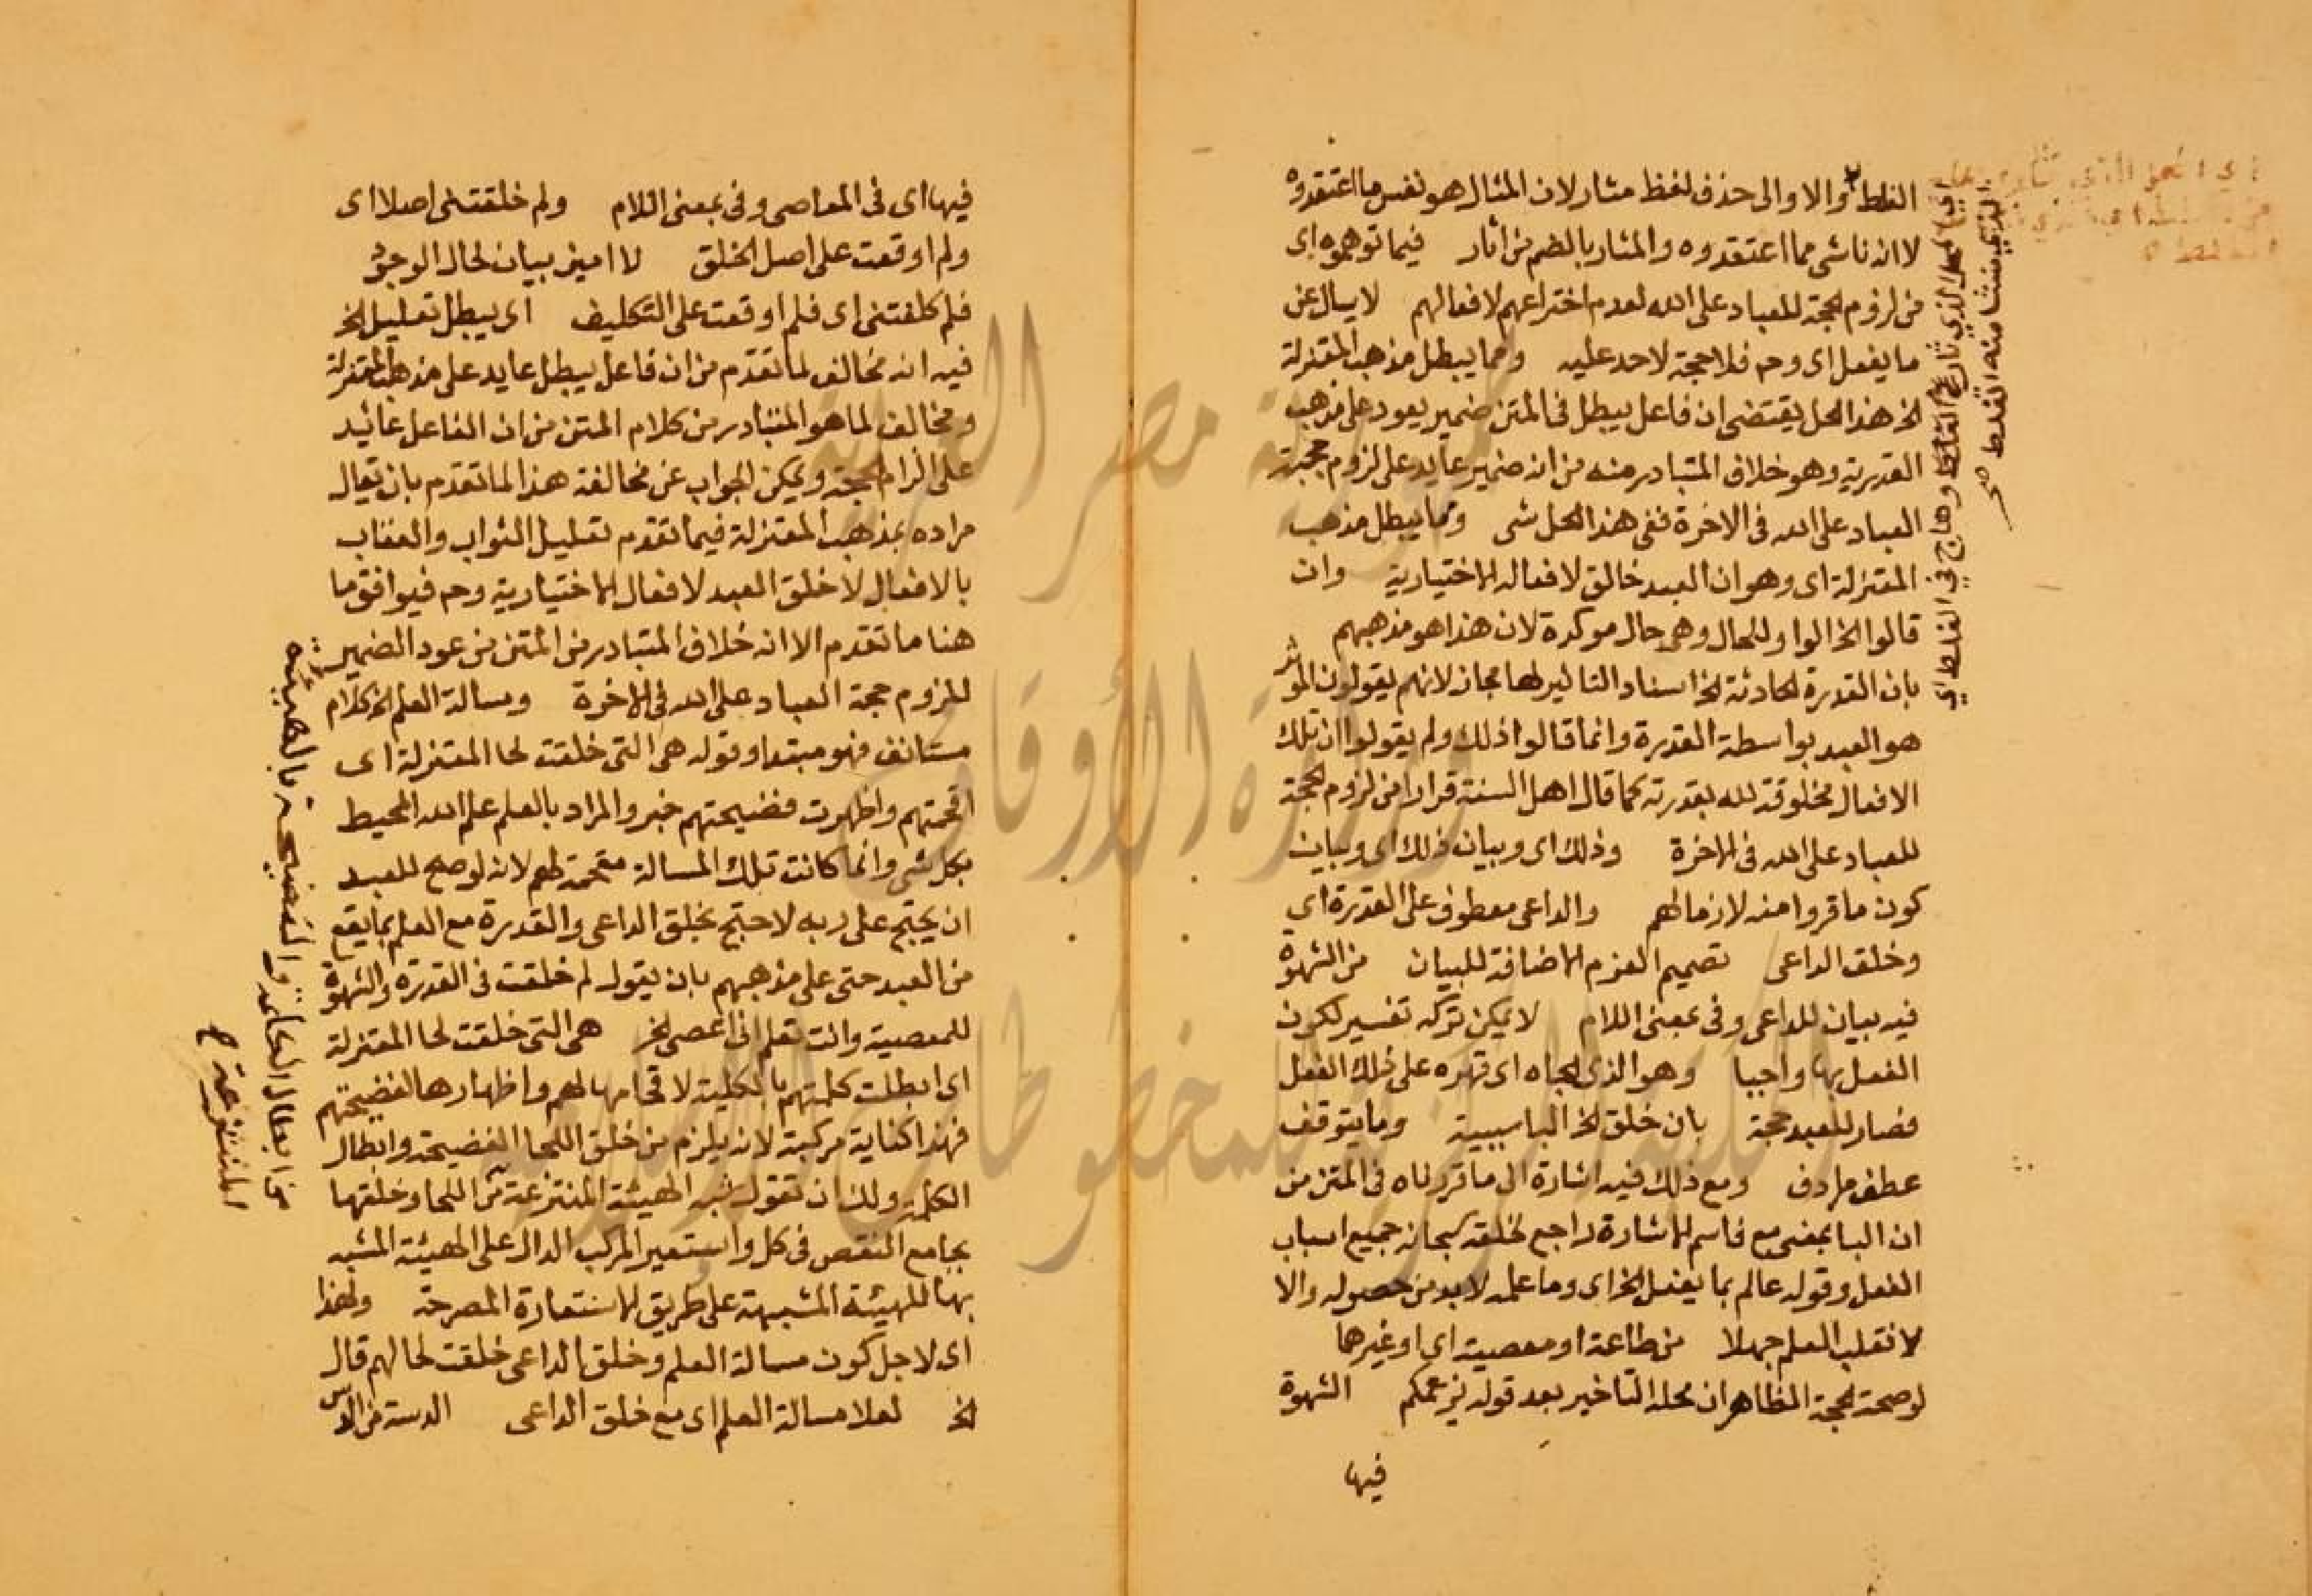 الغلط والاولى حذف لفظ مثار لان المثال هو نفس ما اعتقدوه
لا انه ناشى مما اعتقدوه والمثار بالضم من اثار فيما توهموه اى
من لزوم الحجة للعباد على الله لعدم اختراعهم لافعالهم لا يسال عن
ما يفعل اى وح فلا حجة لاحد عليه ومما يبطل مذهب المعتزلة
الخ هذا الحل يقتضى ان فاعل يبطل فى المتن ضمير يعود على مذهب
القدرية وهو خلاف المتبادر منه من انه ضمير عايد على لزوم حجة
العباد على الله فى الاخرة ففى هذا الحل شى ومما يبطل مذهب
المعتزلة اى وهو ان العبد خالق لافعاله الاختيارية وان
قالوا الخ الواو للحال وهى حال موكدة لان هذا هو مذهبهم
بان القدرة الحادثة الخ اسناد التاثير لها مجاز لانهم يقولون الموثر
هو العبد بواسطة القدرة وانما قالوا ذلك ولم يقولوا ان تلك
الافعال مخلوقة لله بقدرته كما قال اهل السنة فرارا من لزوم الحجة
للعباد على الله فى الاخرة وذلك اى وبيان ذلك اى وبيان
كون ما فروا منه لازما لهم والداعى معطوف على القدرة اى
وخلق الداعى تصميم العزم الاضافة للبيان من الشهوة
فيه بيان للداعى وفى بمعنى اللام لا يمكن تركه تفسير لكون
الفعل بها واجبا وهو الذى الجاه اى قهره على ذلك الفعل
فصار للعبد حجة بان خلق الخ البا سببية وما يتوقف
عطف مرادف ومع ذلك فيه اشارة الى ما قررناه فى المتن من
ان البا بمعنى مع فاسم الاشارة راجع لخلقه سبحانه جميع اسباب
الفعل وقوله عالم بما يفعل الخ اى وما علمه لا بد من حصوله والا
لانقلب العلم جهلا من طاعة او معصية اى او غيرهما
لو صحت الحجة الظاهر ان محله التاخير بعد قوله بزعمكم الشهوة
فيها
اى المحل الذي ثار عن الغلط وهاج فى الغلط اى
الذي منشا منه الغلط صح
فيها اى فى المعاصى وفى بمعنى اللام ولم خلقتنى اصلا اى
ولم اوقعت على اصل الخلق لا اميز بيان لحال الوجود
فلم كلفتنى اى فلم اوقعت على التكليف اى يبطل تعليل الخ
فيه انه مخالف لما تقدم من ان فاعل يبطل عايد على مذهب المعتزلة
ومخالف لما هو المتبادر من كلام المتن من ان الفاعل عائيد
على الزام الحجة ويمكن الجواب عن مخالفة هذا لما تقدم بان يقال
مراده بمذهب المعتزلة فيما تقدم تعليل الثواب والعقاب
بالافعال لا خلق العبد لافعاله الاختيارية وح فيوافق ما
هنا ما تقدم الا انه خلاف المتبادر من المتن من عود الضمير
للزوم حجة العباد على الله فى الاخرة ومسالة العلم الخ كلام
مستانف فهو مبتدا وقوله هى التى خلقت لحا المعتزلة اى
اقحمتهم واظهرت فضيحتهم خبر والمراد بالعلم علم الله المحيط
بكل شى وانما كانت تلك المسالة مقحمة لهم لانه لو صح للعبد
ان يحتج على ربه لاحتج بخلق الداعى والقدرة مع العلم بما يقع
من العبد حتى على مذهبهم بان يقول لم خلقت فى القدرة والشهوة
للمعصية وانت تعلم انى اعصى الخ هى التى خلقت لحا المعتزلة
اى ابطلت كلمتهم بالكلية لاقحامها لهم واظهارها لفضيحتهم
فهذا كناية مركبة لانه يلزم من خلق اللحا الفضيحة وابطال
الكلام ولك ان تقول شبه الهيئة المنتزعة من اللحا وخلقها
بجامع النقص فى كل واستعير المركب الدال على الهيئة المشبه
بها للهيئة المشبهة على طريق الاستعارة المصرحة ولهذا
اى لاجل كون مسالة العلم وخلق الداعى خلقت لحالهم قال
الخ لعلا مسالة العلم اى مع خلق الداعى الدسة من الدس
بالهيئة
المنتزعة
من ابطال الحاعة والفضيحة